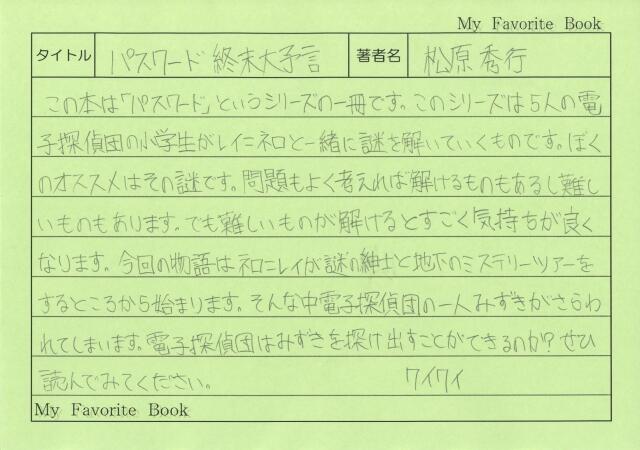 My Favorite Book
タイトル パスワード 終末大予言 著者名 松原秀行
この本は「パスワード」というシリーズの一冊です。このシリーズは5人の電
子探偵団の小学生がレイニネロと一緒に謎を解いていくものです。ぼく
のオススメはその謎です。問題もよく考えれば解けるものもあるし難し
いものもあります。でも難しいものが解けるとすごく気持ちが良く
なります。今回の物語はネロニレイが謎の紳士と地下のミステリーツアーを
するところから始まります。そんな中電子探偵団の一人みずきがさらわ
れてしまいます。電子探偵団はみずきを探け出すことができるのか?ぜひ
読んでみてください。 ワイワイ
My Favorite Book